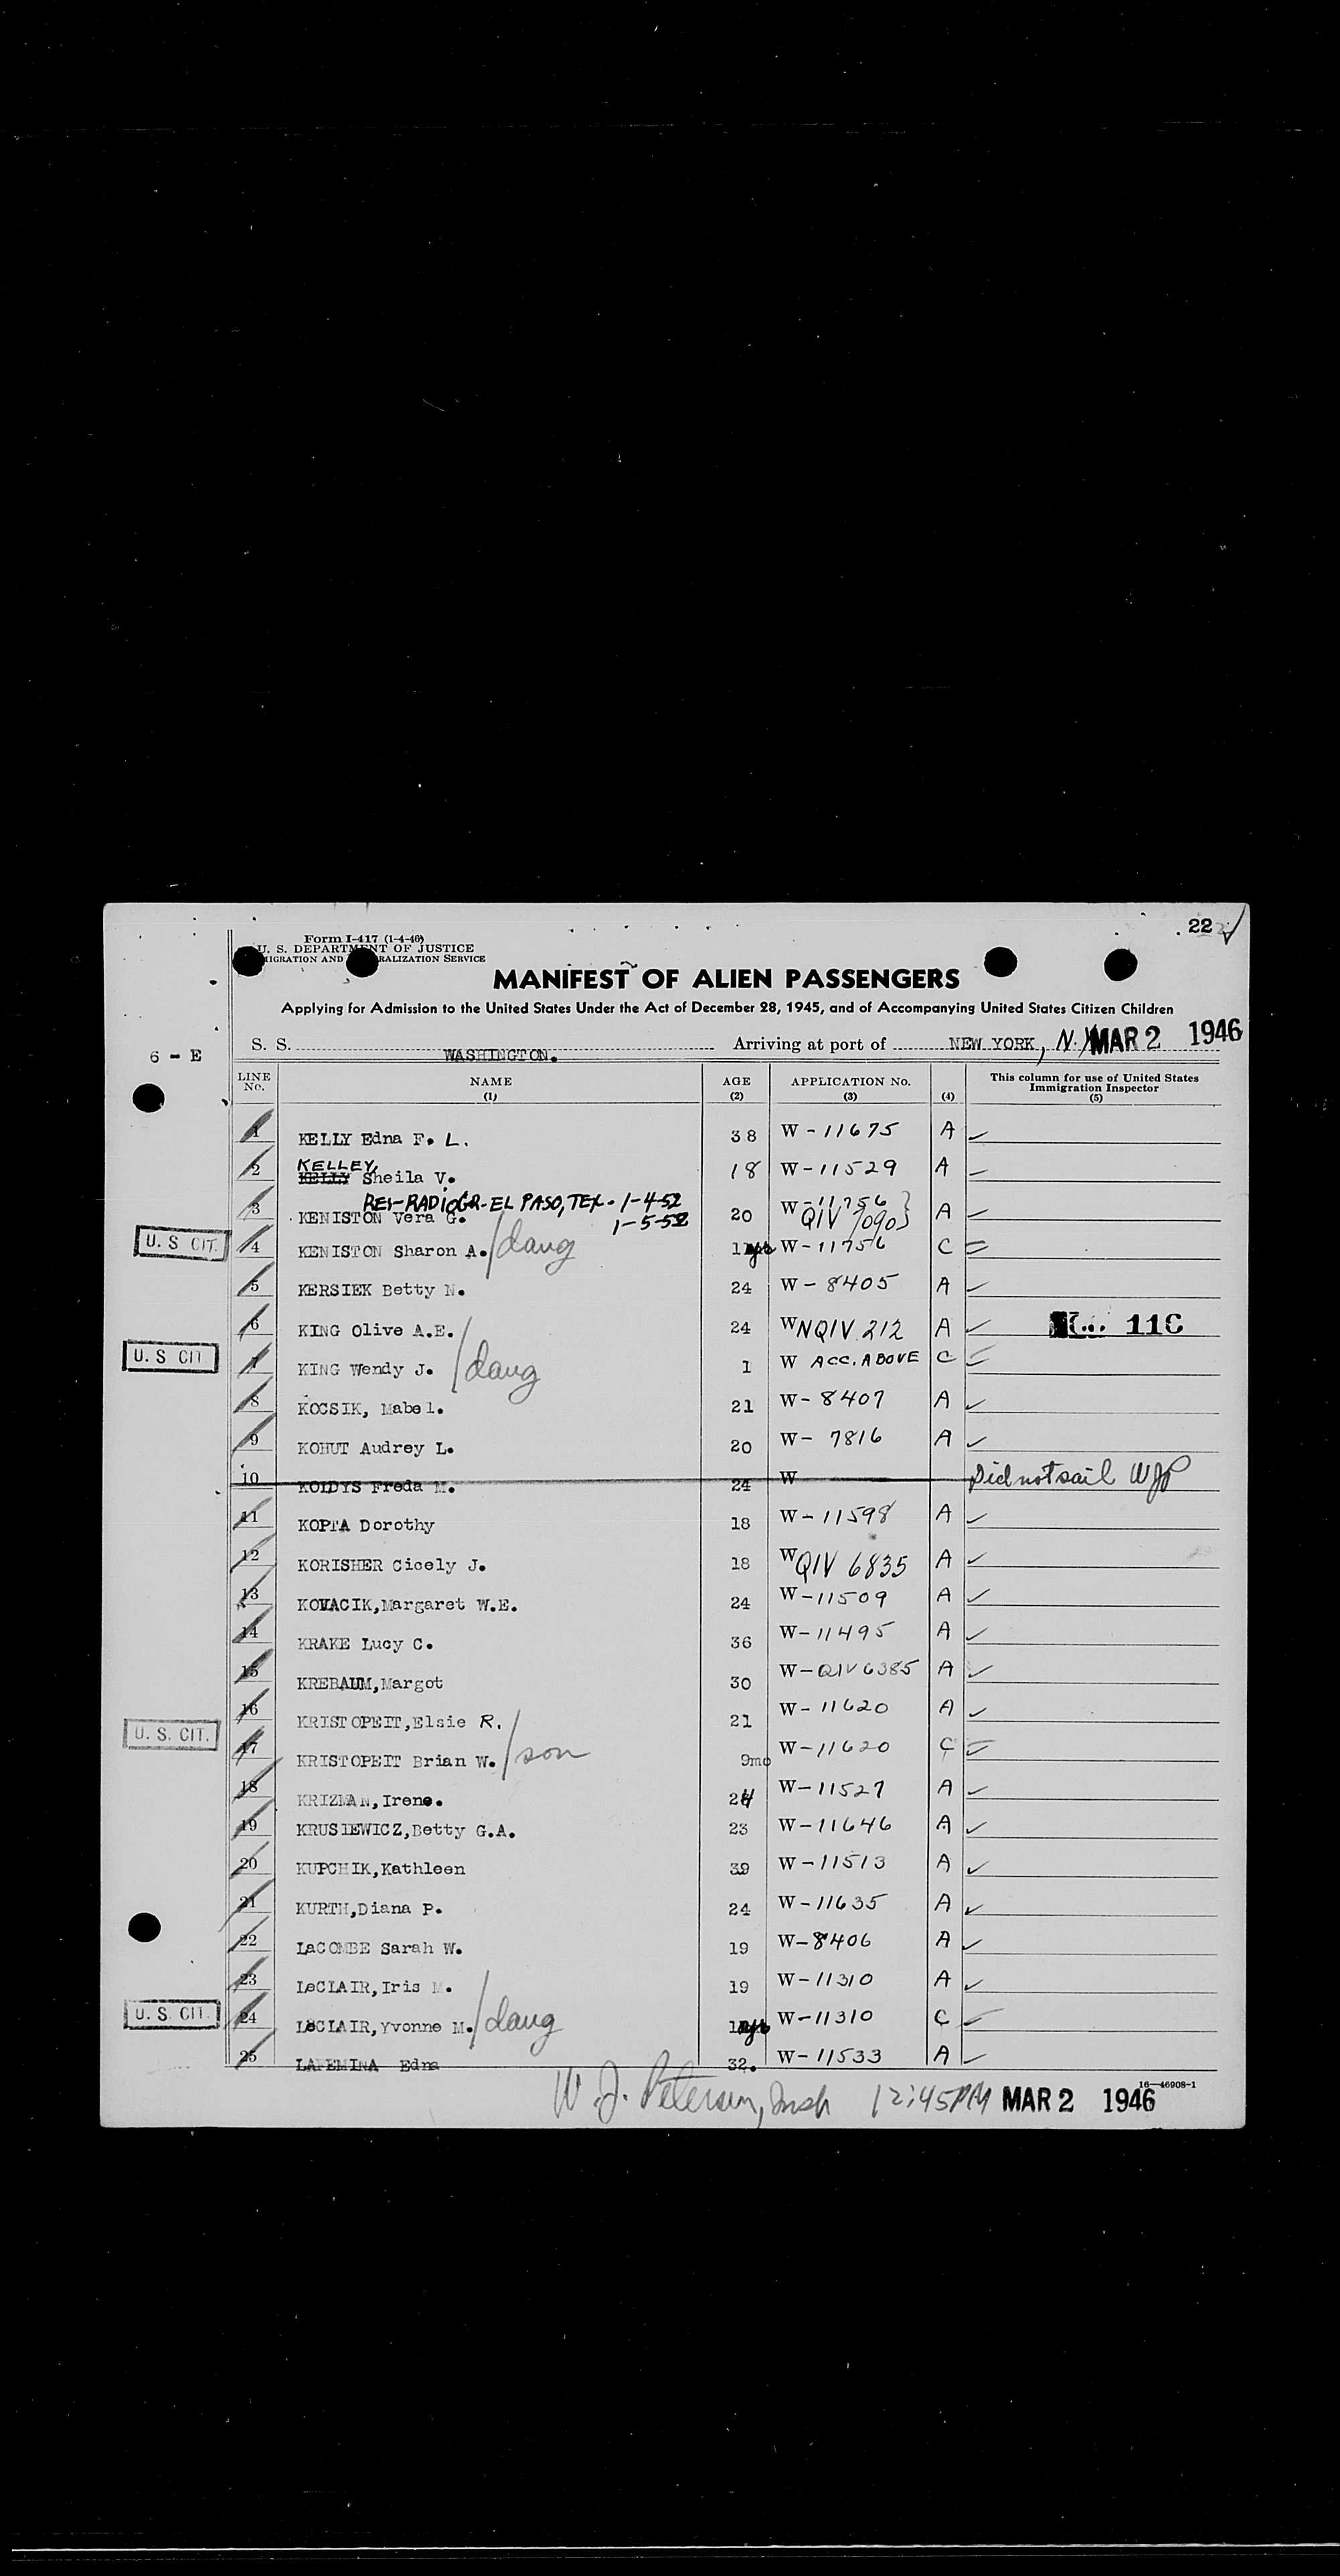 22
Form I-417 (1-4-46)
U. S. DEPARTMENT OF JUSTICE
IMMIGRATION AND NATURALIZATION SERVICE
MANIFEST OF ALIEN PASSENGERS
Applying for Admission to the United States Under the Act of December 28, 1945, and of Accompanying United States Citizen Children
6 - E S. S. WASHINGTON. Arriving at port of NEW YORK, N.Y. MAR 2 1946
LINE No. NAME (1) AGE (2) APPLICATION No. (3) (4) This column for use of United States Immigration Inspector (5)
1 KELLY Edna F. L. 38 W-11675 A
2 KELLEY, KELLY Sheila V. 18 W-11529 A
REI-RADIOGR-EL PASO, TEX- 1-4-52
1-5-52
3 KENISTON Vera G. 20 W-11756 QIV 7090 A
U. S CIT. 4 KENISTON Sharon A. /daug W-11756 C
5 KERSIEK Betty N. 24 W-8405 A
6 KING Olive A.E. 24 W NQIV 212 A 116
U. S CIT 7 KING Wendy J. /daug 1 W ACC. ABOVE C
8 KOCSIK, Mabel. 21 W-8407 A
9 KOHUT Audrey L. 20 W- 7816 A
10 KOLDYS Freda M. 24 W Did not sail WJP
11 KOPTA Dorothy 18 W-11598 A
12 KORISHER Cicely J. 18 W QIV 6835 A
13 KOVACIK,Margaret W.E. 24 W-11509 A
14 KRAKE Lucy C. 36 W-11495 A
15 KREBAUM,Margot 30 W-QIV6385 A
16 KRISTOPEIT,Elsie R. 21 W-11620 A
U. S. CIT. 17 KRISTOPEIT Brian W. /son 9mo W-11620 C
18 KRIZMAN,Irene. 24 W-11527 A
19 KRUSIEWICZ,Betty G.A. 23 W-11646 A
20 KUPCHIK,Kathleen 39 W-11513 A
21 KURTH,Diana P. 24 W-11635 A
22 LaCOMBE Sarah W. 19 W-8406 A
23 LeCLAIR,Iris M. 19 W-11310 A
U. S. CIT. 24 LeCLAIR,Yvonne M. /daug W-11310 C
25 LAFEMINA Edna 32. W-11533 A
16-46908-1
W. J. Peterson, Insp 12:45PM MAR 2 1946